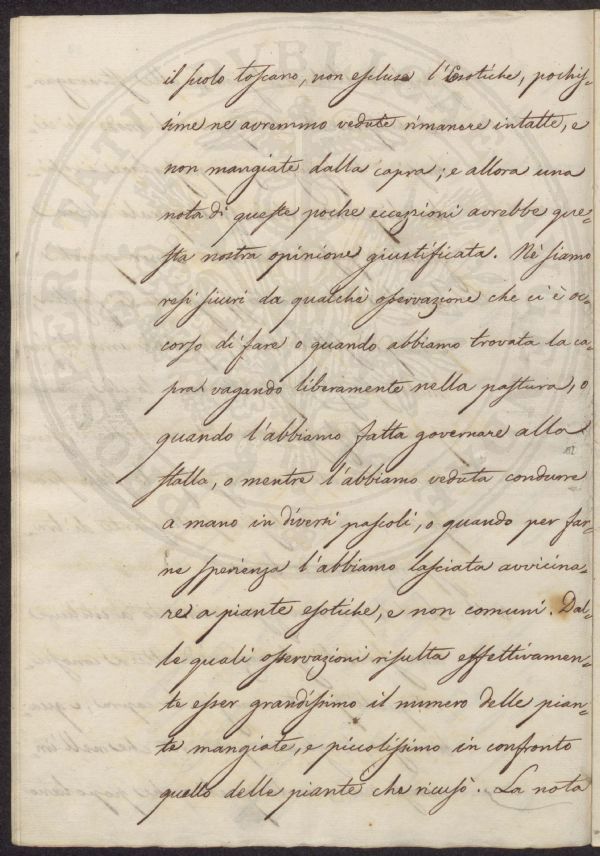 il suolo toscano, non escluse l'Esotiche, pochis-
sime ne avremmo vedute rimanere intatte, e
non mangiate dalla capra; e allora una
nota di queste poche eccezioni avrebbe que-
sta nostra opinione giustificata. Nè siamo
resi sicuri da qualchè osservazione che ci è oc-
corso di fare o quando abbiamo trovata la ca-
pra vagando liberamente nella pastura, o
quando l'abbiamo fatta governare alla
stalla, o mentre l'abbiamo veduta condurre
a mano in diversi pascoli, o quando per far-
ne sperienza l'abbiamo lasciata avvicina-
re a piante esotiche, e non comuni. Dal-
le quali osservazioni risulta effettivamen-
te esser grandissimo il numero delle pian-
te mangiate, e piccolissimo in confronto
quello delle piante che ricusò. La nota